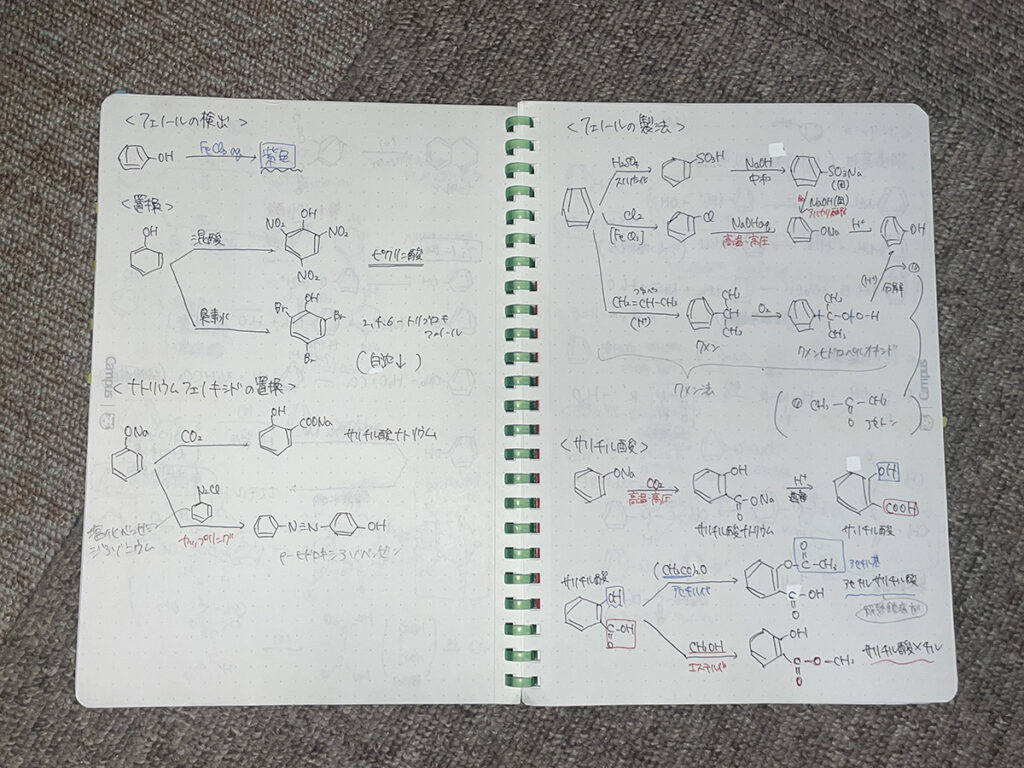 <フェノールの検出>
OH FeCl3 aq 紫色
<置換>
OH 混酸 OH NO2 NO2 NO2 ピクリン酸
臭素水 OH Br Br Br 2,4,6-トリブロモフェノール
(白沈↓)
<ナトリウムフェノキシドの置換>
ONa CO2 OH COONa サリチル酸ナトリウム
N2Cl
塩化ベンゼンジアゾニウム カップリング N=N OH
p-ヒドロキシアゾベンゼン
<フェノールの製法>
H2SO4 スルホン化 SO3H NaOH 中和 SO3Na (固)
NaOH(固) アルカリ融解
Cl2 [FeCl3] Cl NaOHaq 高温・高圧 ONa H+ OH
CH2=CH-CH3 (H+) CH3 CH CH3 O2 CH3 C-O-O-H CH3 (H+) 分解
クメン クメンヒドロペルオキシド
クメン法
CH3-C-CH3 O アセトン
<サリチル酸>
ONa CO2 高温・高圧 OH C-ONa O H+ OH COOH
サリチル酸ナトリウム サリチル酸
サリチル酸 OH C-OH O
(CH3CO)2O アセチル化 O-C-CH3 O アセチル基
C-OH O アセチルサリチル酸
解熱鎮痛剤
CH3OH エステル化 OH C-O-CH3 O サリチル酸メチル
Campus
Campus